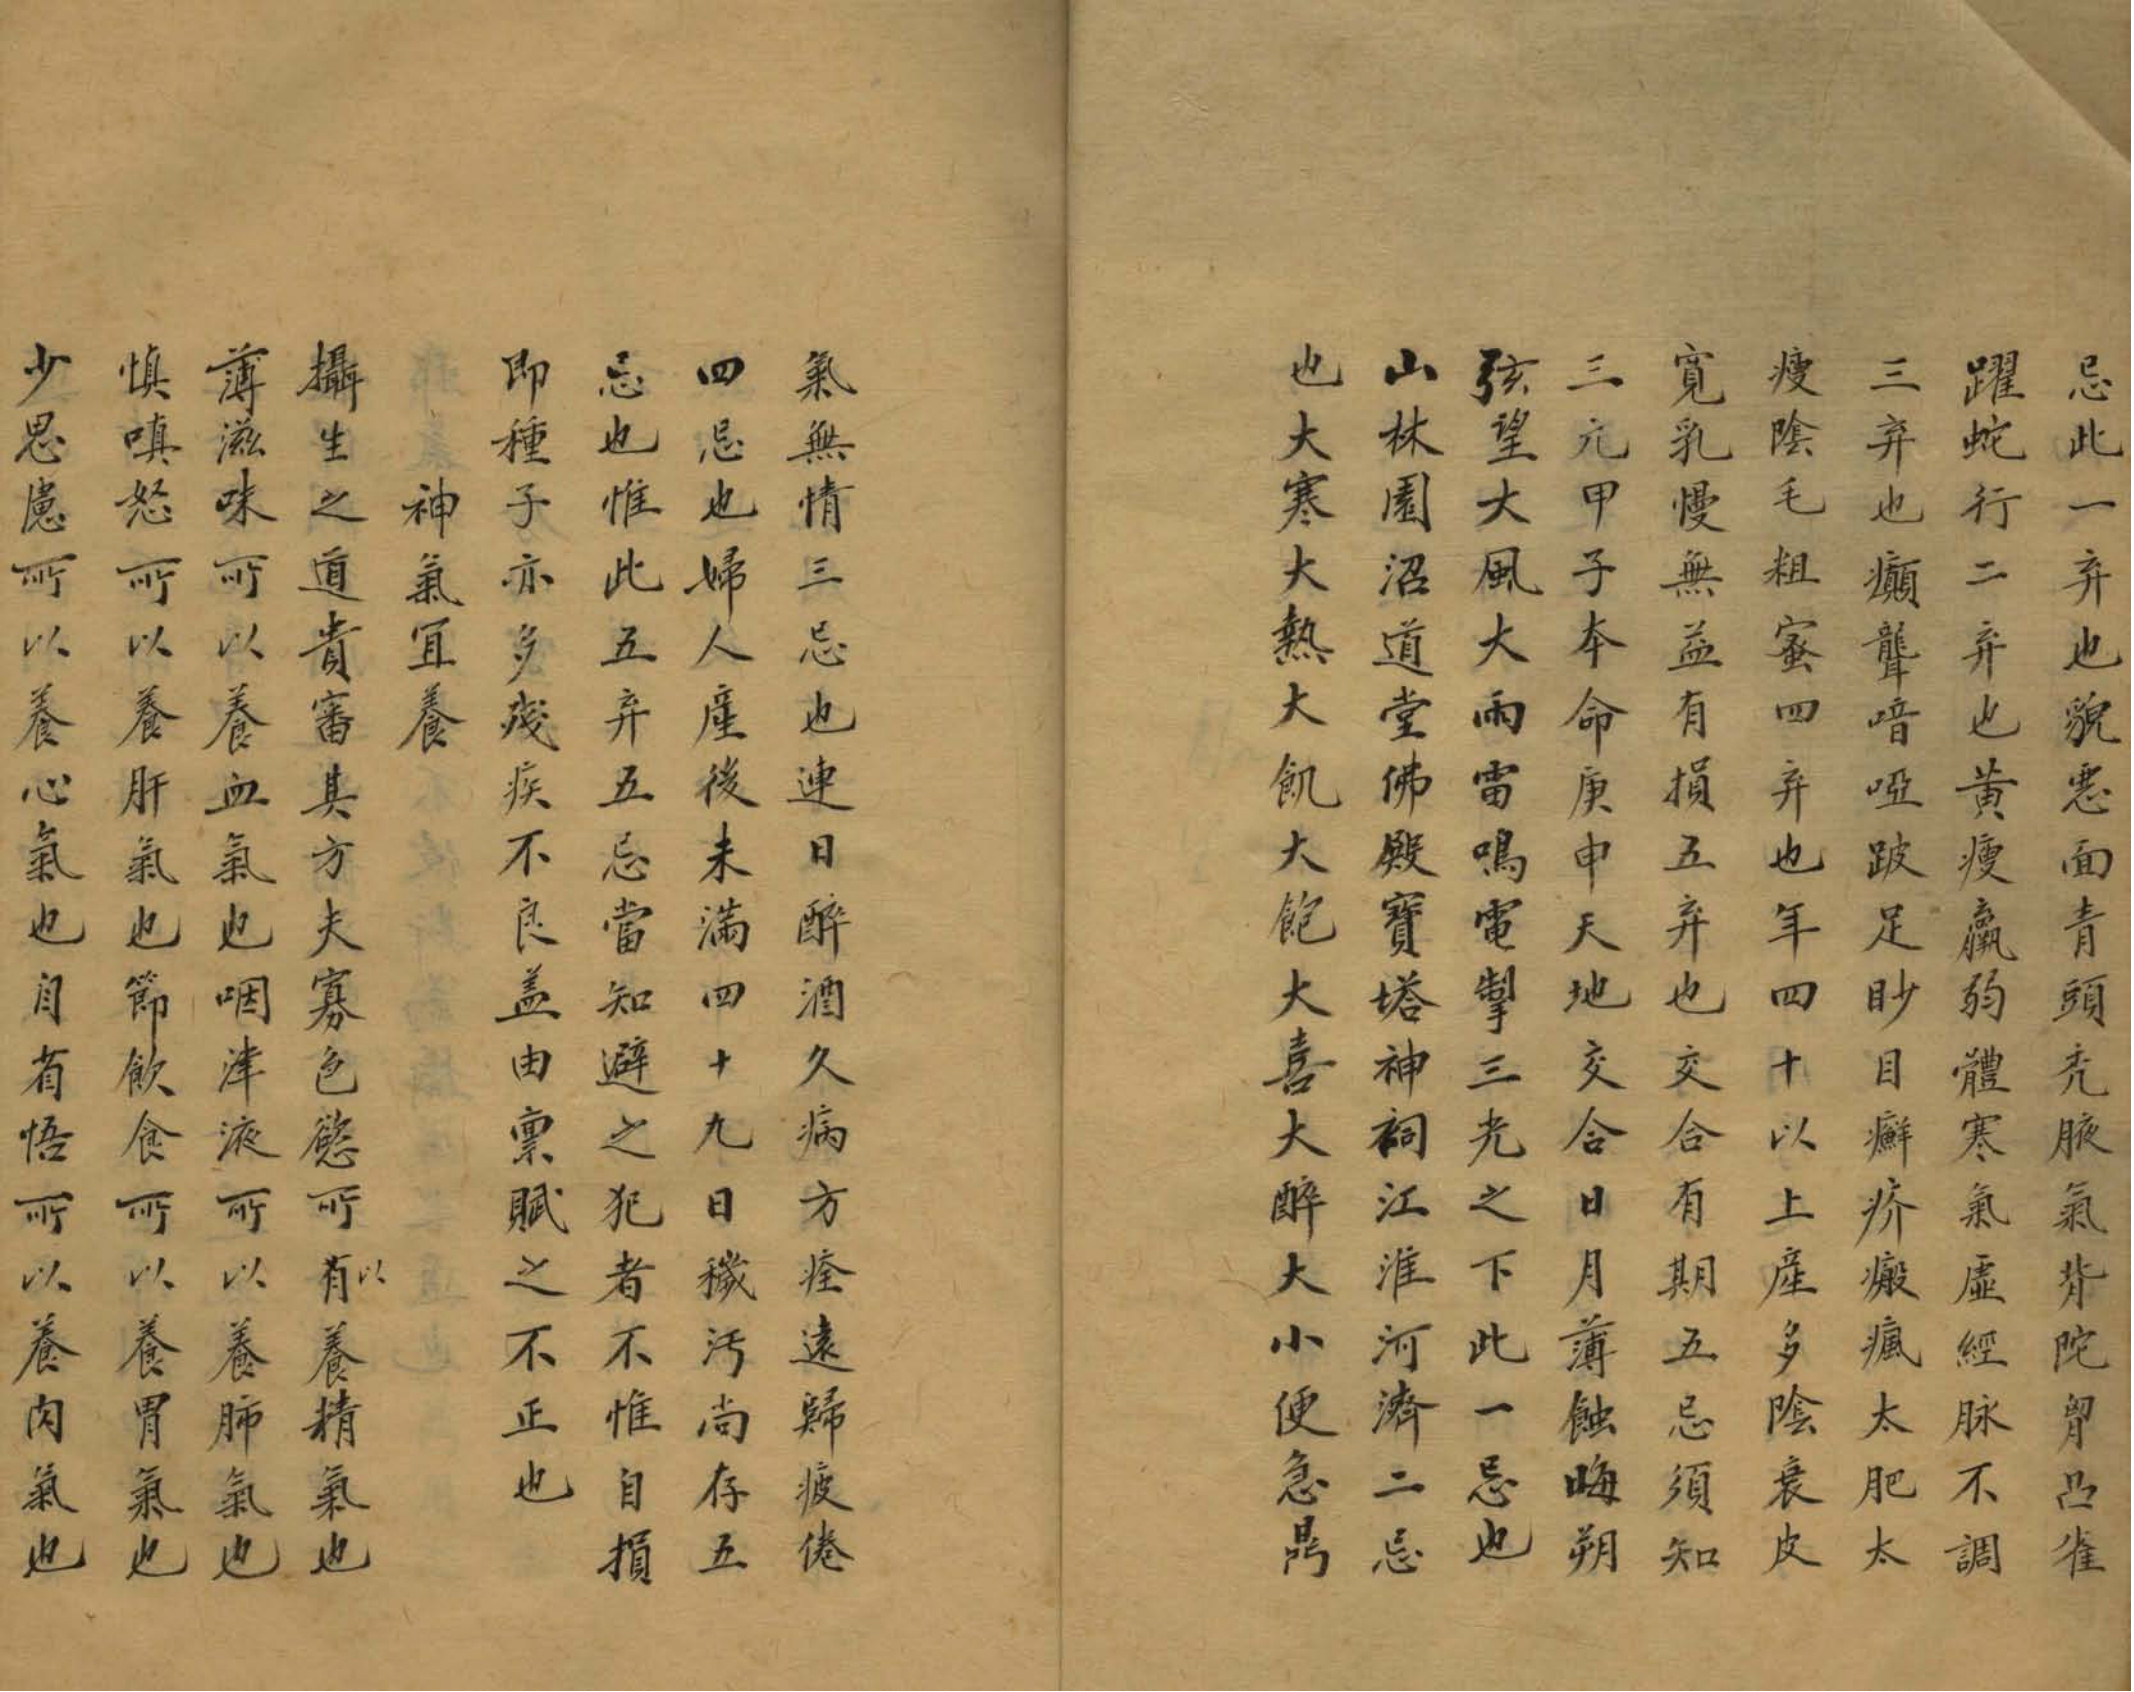 忌此一弃也貌惡面青頭禿腋氣背陀胷凸雀
躍蛇行二弃也黃瘦羸弱體寒氣虛經脉不調
三弃也癲聾喑啞跛足眇目癬疥瘢瘋太肥太
瘦陰毛粗蜜四弃也年四十以上産多陰衰皮
寬乳慢無益有損五弃也交合有期五忌須知
三元甲子本命庚申天地交合日月薄蝕晦朔
弦望大風大雨雷鳴電掣三光之下此一忌也
山林園沼道堂佛殿寶塔神祠江淮河濟二忌
也大寒大熱大飢大飽大喜大醉大小便急
氣無情三忌也連日醉酒久病方痊遠歸疲倦
四忌也婦人産後未滿四十九日穢汚尚存五
忌也惟此五弃五忌當知避之犯者不惟自損
即種子亦多殘疾不良盖由禀賦之不正也
神氣宜養
攝生之道貴審其方夫寡色慾所有以養精氣也
薄滋味所以養血氣也咽津液所以養肺氣也
慎嗔怒所以養肝氣也節飲食所以養胃氣也
少思慮所以養心氣也自省悟所以養肉氣也